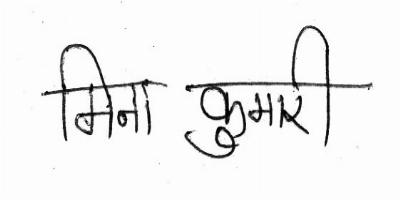 मिना कुमारी